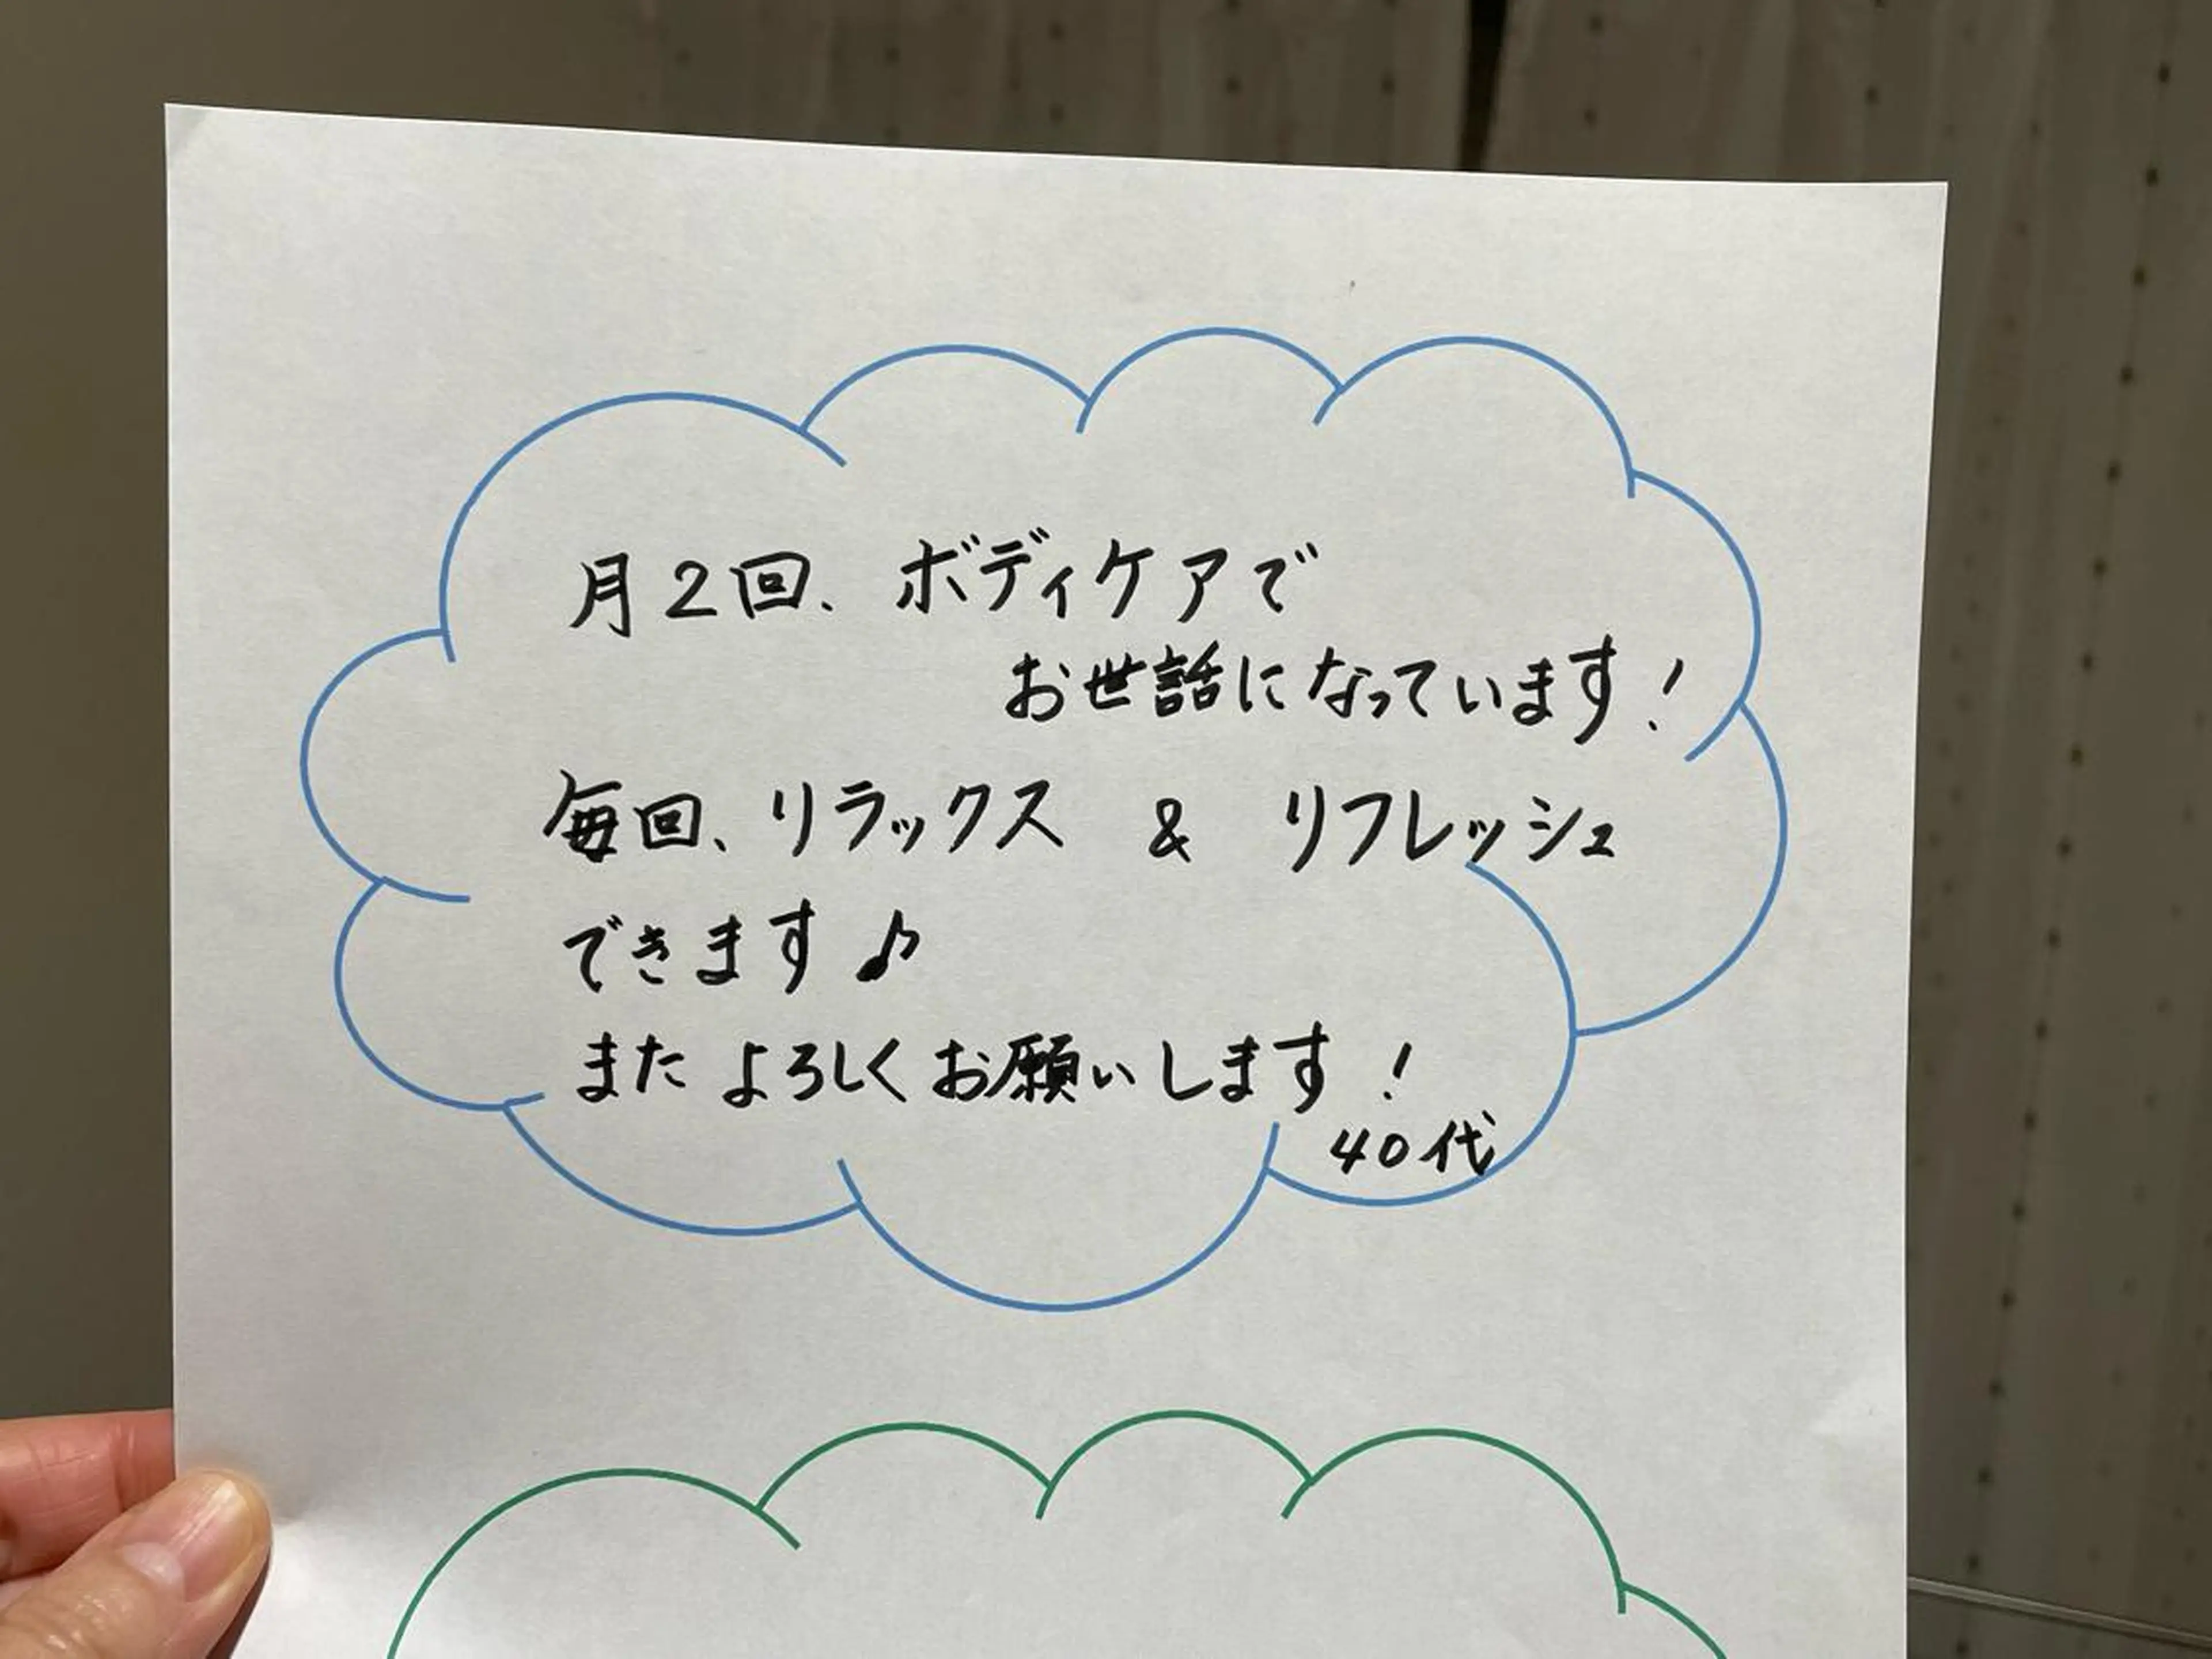 月2回、ボディケアで
お世話になっています!
毎回、リラックス & リフレッシュ
できます♪
また よろしく お願いします!
40代